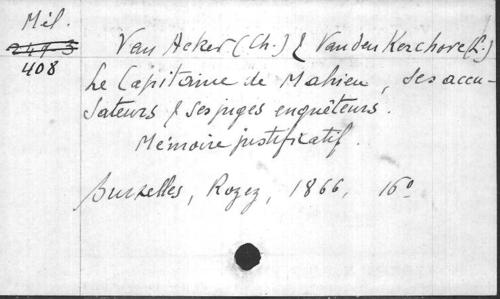 Mél.
241-3
408
Van Acker (Ch.) & Vanden Kerchove (L.)
Le Capitaine de Mahieu, ses accu-
sateurs & ses juges enquêteurs.
Mémoire justificatif.
Bruxelles, Rozez, 1866, 16º